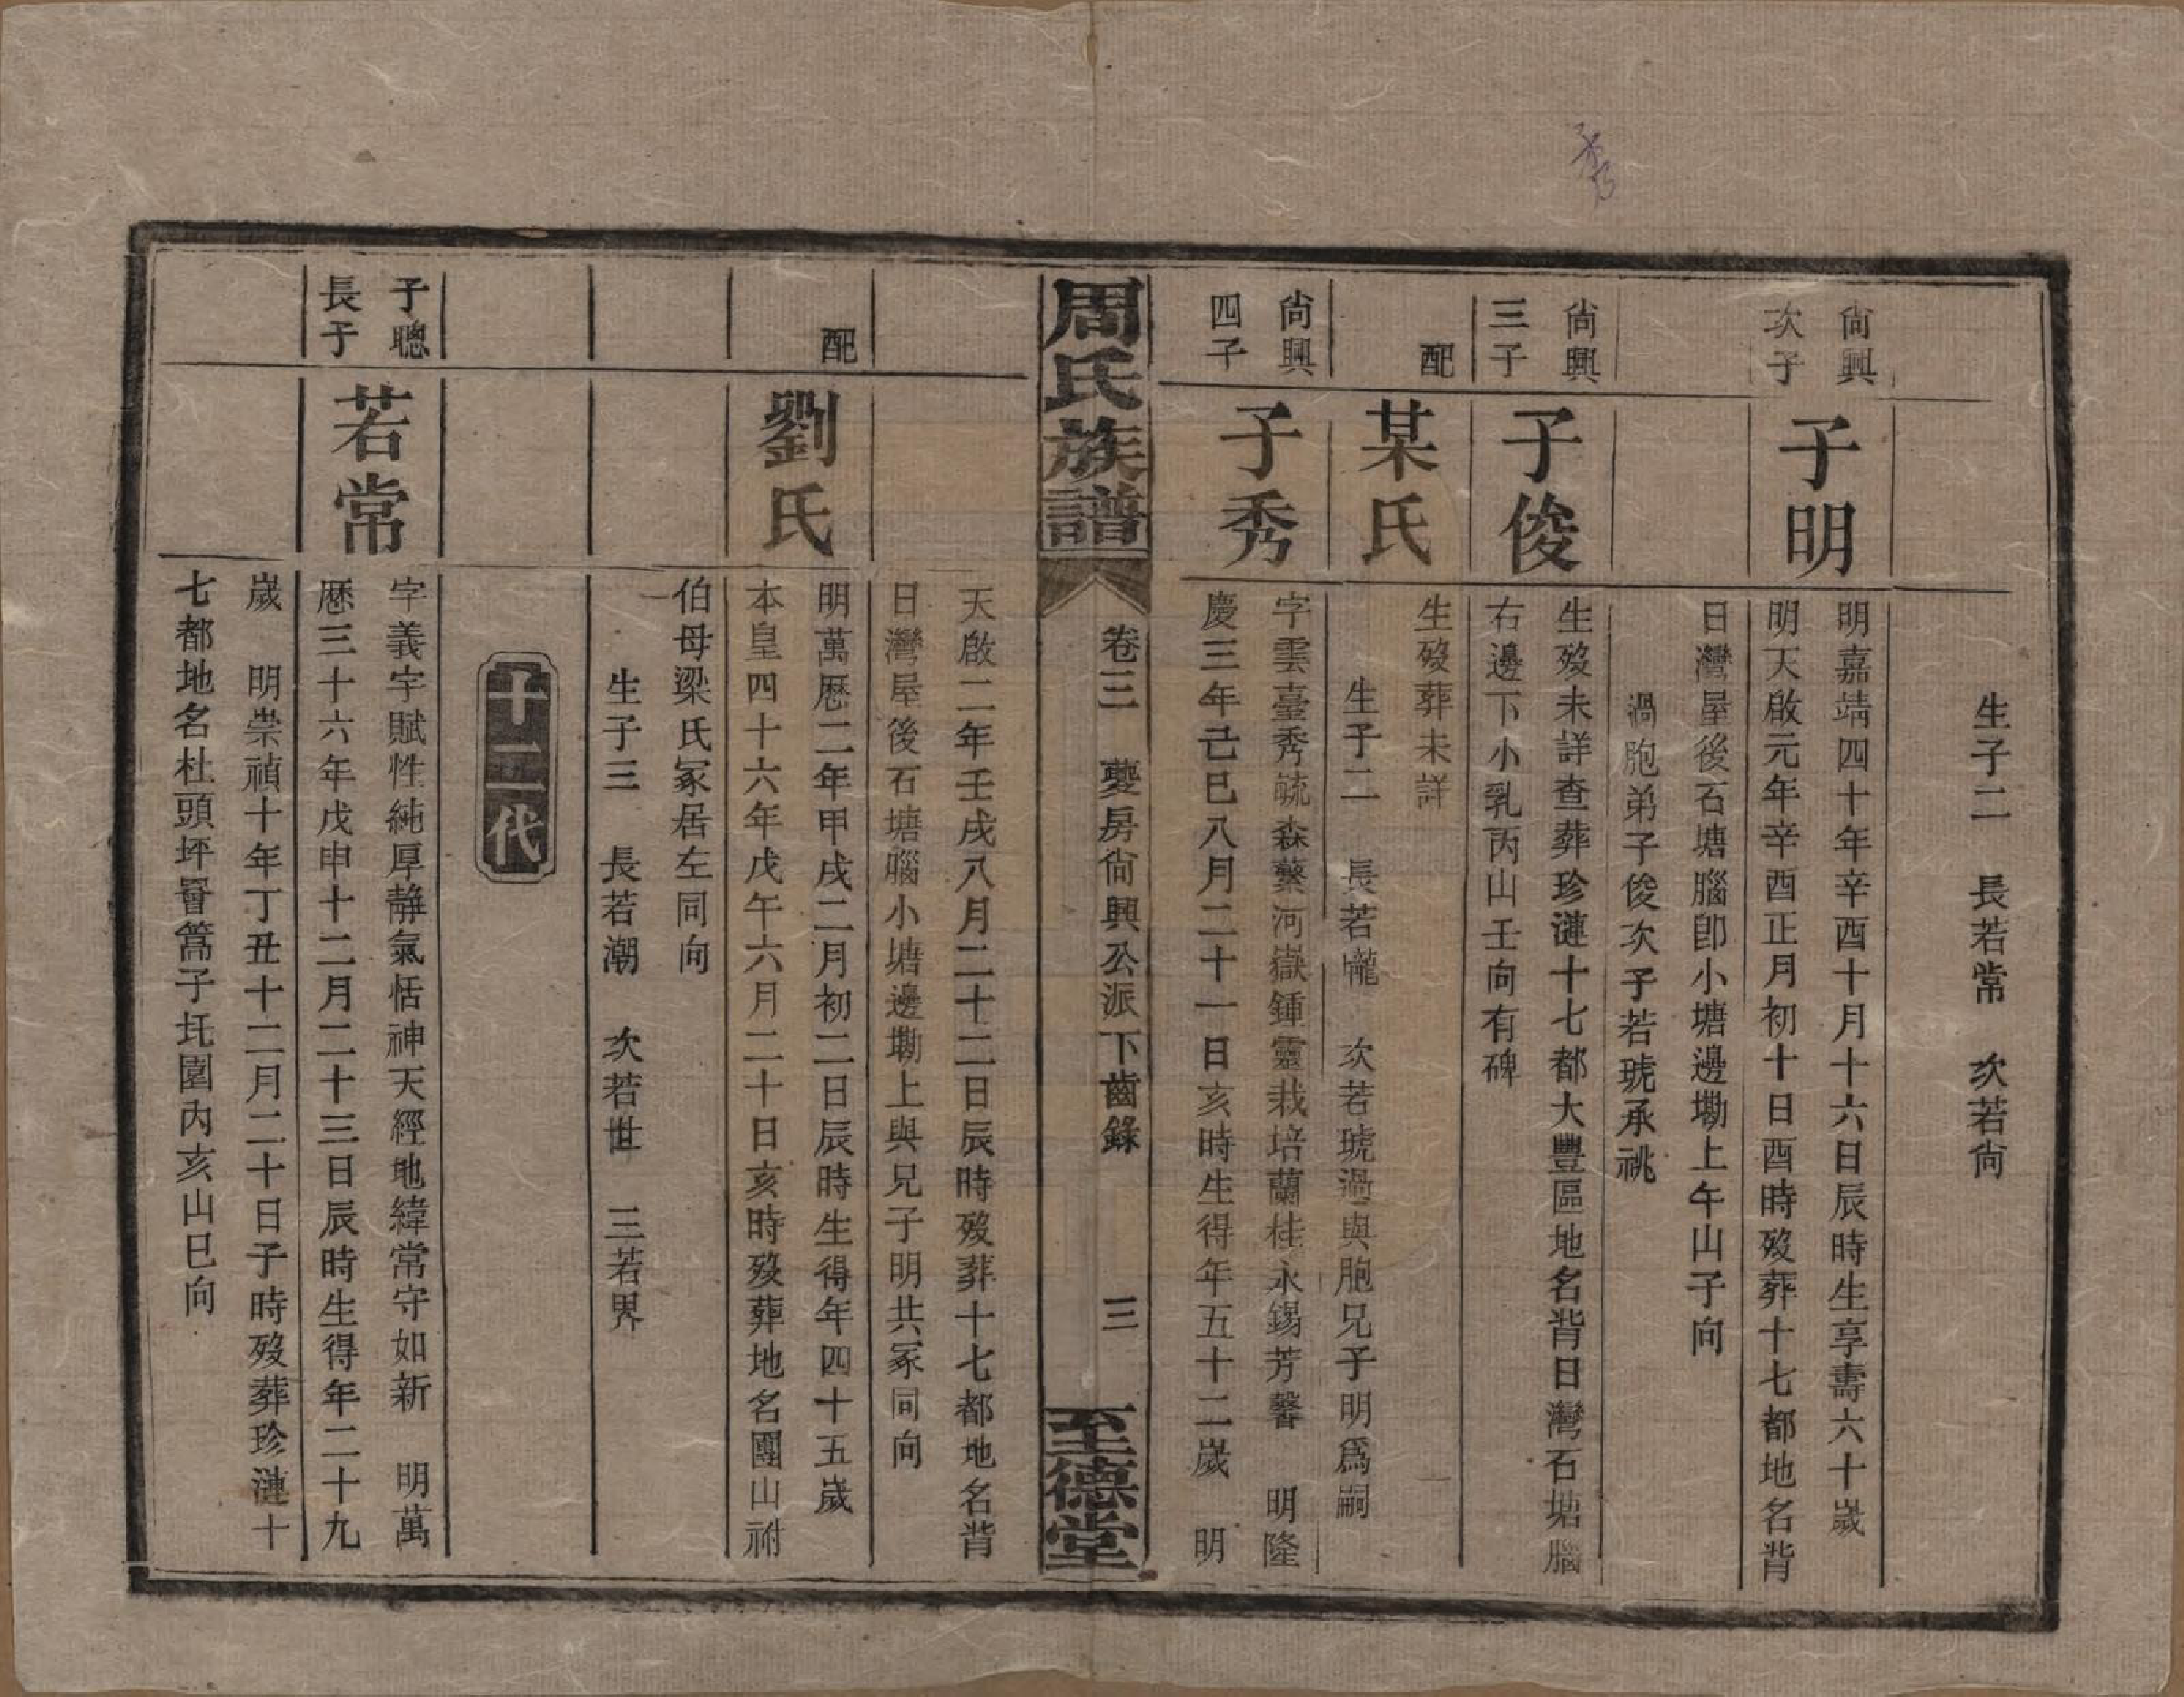 秀
生子二　長若常　次若尙
尙興
次子
子明
明嘉靖四十年辛酉十月十六日辰時生享壽六十歲
明天啟元年辛酉正月初十日酉時歿葬十七都地名背
日灣屋後石塘腦卽小塘邊墈上午山子向
過胞弟子俊次子若琥承祧
尙興
三子
子俊
生歿未詳查葬珍漣十七都大豐區地名背日灣石塘腦
右邊下小乳丙山壬向有碑
配
某氏
生歿葬未詳
生子二　長若巃　次若琥過與胞兄子明爲嗣
尙興
四子
子秀
字雲臺秀毓森蘩河嶽鍾靈栽培蘭桂永錫芳馨　明隆
慶三年己巳八月二十一日亥時生得年五十二歲　明
周氏族譜
卷三　夔房尙興公派下齒錄　三
至德堂
天啟二年壬戌八月二十二日辰時歿葬十七都地名背
日灣屋後石塘腦小塘邊墈上與兄子明共冢同向
配
劉氏
明萬厯二年甲戌二月初二日辰時生得年四十五歲
本皇四十六年戊午六月二十日亥時歿葬地名團山祔
伯母梁氏冢居左同向
生子三　長若潮　次若世　三若界
十二代
子聰
長子
若常
字義字賦性純厚靜氣恬神天經地緯常守如新　明萬
厯三十六年戊申十二月二十三日辰時生得年二十九
歲　明崇禎十年丁丑十二月二十日子時歿葬珍漣十
七都地名杜頭坪罾篙子圫園內亥山巳向